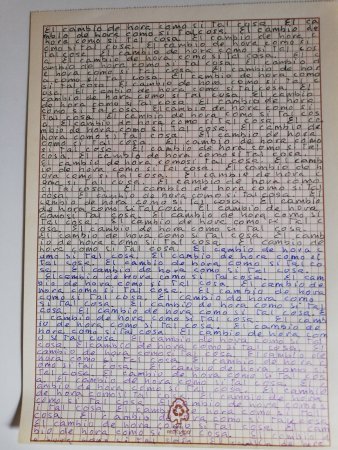 El cambio de hora como si Tal cosa. El ca
mbio de hora como si Tal cosa. El cambio de
hora como si Tal cosa. El cambio de hora
como si Tal cosa. El cambio de hora como si
Tal cosa. El cambio de hora como si Tal cos
a. El cambio de hora como si Tal cosa. El
cambio de hora como si Tal cosa. El cambio d
e hora como si Tal cosa. El cambio de hor
a como si Tal cosa. El cambio de hora como
si Tal cosa. El cambio de hora como si Tal
cosa. El cambio de hora como si Tal cosa. El
cambio de hora como si Tal cosa. El cambio
de hora como si Tal cosa. El cambio de hora
como si Tal cosa. El cambio de hora como si
Tal cosa. El cambio de hora como si Tal cos
a. El cambio de hora como si Tal cosa. El cam
bio de hora como si Tal cosa. El cambio de
hora como si Tal cosa. El cambio de hora como
si Tal cosa. El cambio de hora como si Tal
cosa. El cambio de hora como si Tal cosa.
El cambio de hora como si Tal cosa. El camb
io de hora como si Tal cosa. El cambio de h
ora como si Tal cosa. El cambio de hora co
mo si Tal cosa. El cambio de hora como
si Tal cosa. El cambio de hora como si Tal
cosa. El cambio de hora como si Tal cosa. El
cambio de hora como si Tal cosa. El cambio de
hora como si Tal cosa. El cambio de hora
como si Tal cosa. El cambio de hora como si
Tal cosa. El cambio de hora como si Tal c
osa. El cambio de hora como si Tal cosa.
El cambio de hora como si Tal cosa. El cambio
de hora como si Tal cosa. El cambio de hora co
mo si Tal cosa. El cambio de hora como si
Tal cosa. El cambio de hora como si Tal co
sa. El cambio de hora como si Tal cosa.
El cambio de hora como si Tal cosa. El cam
bio de hora como si Tal cosa. El cambio de
hora como si Tal cosa. El cambio de hora
como si Tal cosa. El cambio de hora como
si Tal cosa. El cambio de hora como si Tal
cosa. El cambio de hora como si Tal cosa. E
l cambio de hora como si Tal cosa. El camb
io de hora como si Tal cosa. El cambio de
hora como si Tal cosa. El cambio de hora com
o si Tal cosa. El cambio de hora como si Tal
cosa. El cambio de hora como si Tal cosa. El
cambio de hora como si Tal cosa. El cambio
de hora como si Tal cosa. El cambio de hora c
omo si Tal cosa. El cambio de hora como si
Tal cosa. El cambio de hora como si Tal cos
a. El cambio de hora como si Tal cosa. El
cambio de hora como si Tal cosa. El cambio
de hora como si Tal cosa. El cambio de hora
como si Tal cosa. El cambio de hora como
si Tal cosa. El cambio de hora como si Tal
cosa. El cambio de hora como si Tal cosa.
El cambio de hora como si Tal cosa. El cam
bio de hora como si Tal cosa. El cambio de